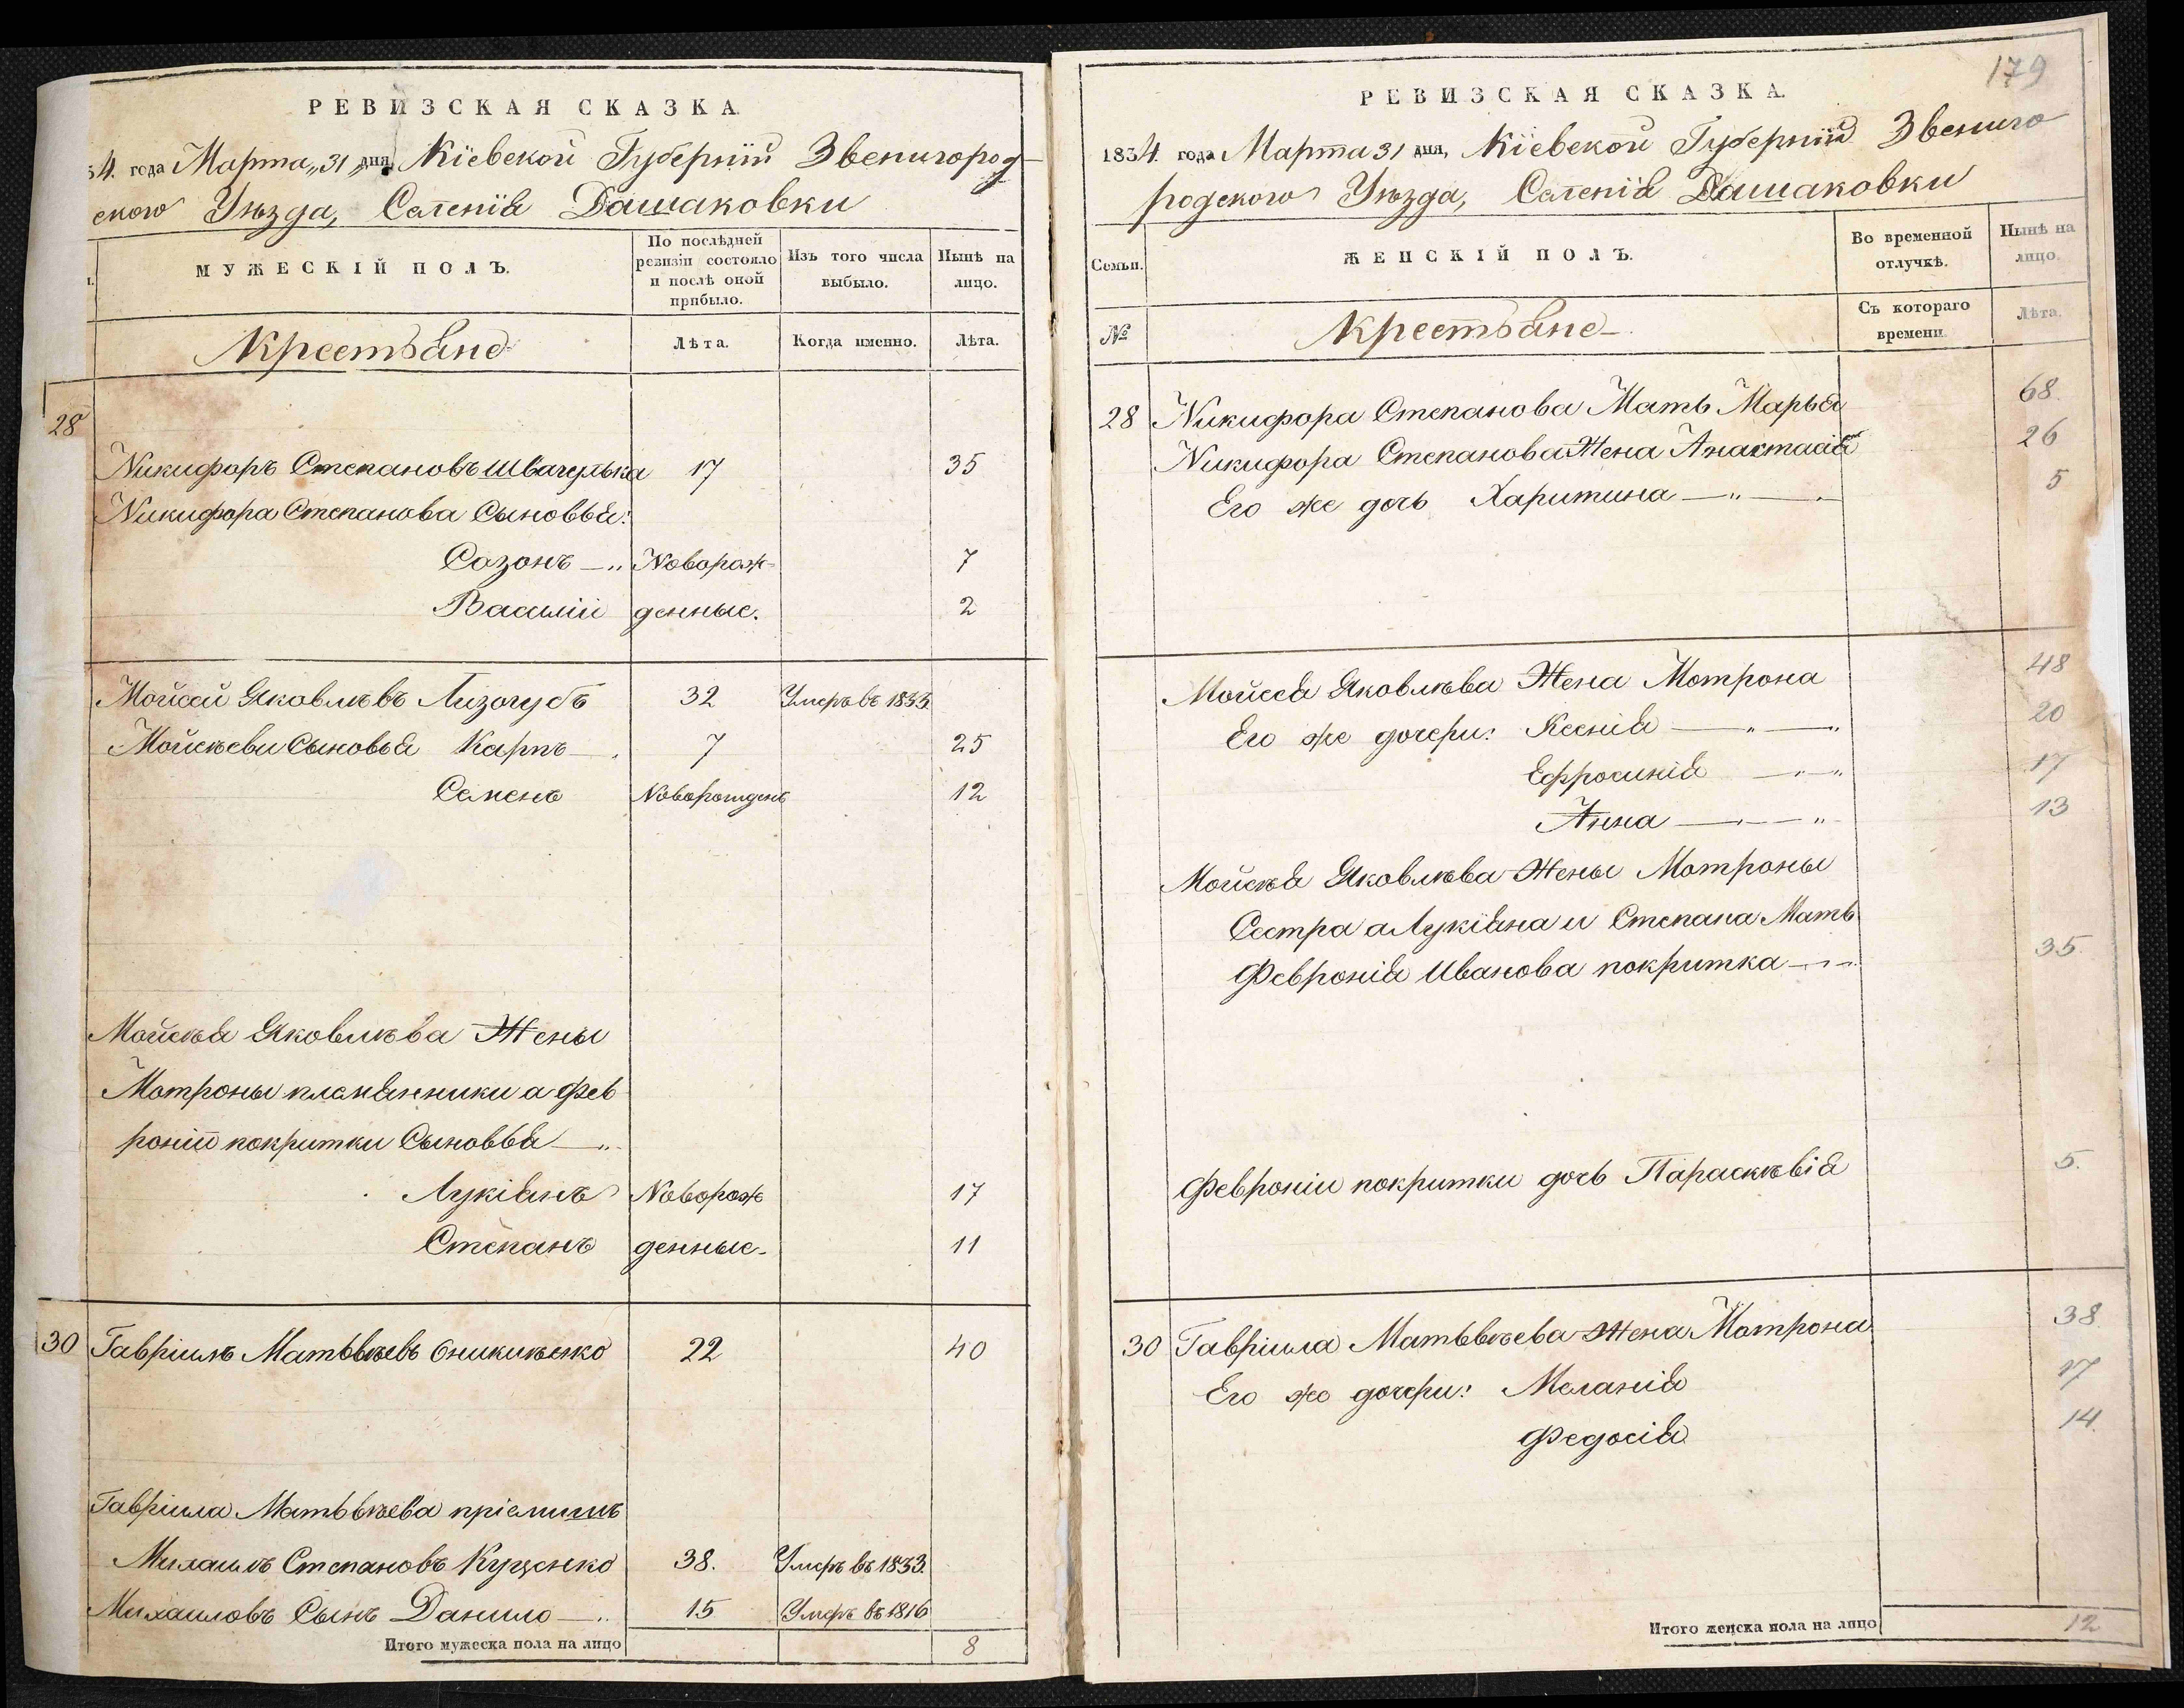 РЕВИЗСКАЯ СКАЗКА.
4. года Марта „31„ дня, Кіевской Губерніи Звенигород-
скаго Уѣзда, Селенія Дашаковки
МУЖЕСКІЙ ПОЛЪ.
По послѣдней ревизіи состояло и послѣ оной прибыло.
Изъ того числа выбыло.
Нынѣ на лицо.
Крестьяне
Лѣта.
Когда именно.
Лѣта.
28
Никифоръ Степановъ Швачулька 17 35
Никифора Степанова Сыновья:
Сазонъ —„ Новорож- 7
Василій денные. 2
Мойсей Яковлѣвъ Лизогубъ 32 Умеръ въ 1833
Мойсѣеви Сыновья Карпъ — 7 25
Семенъ Новорожденъ 12
Мойсѣя Яковлѣва Жены
Мотроны племянники а Фев
роніи покритки Сыновья —„
Лукіянъ Новорож 17
Степанъ денные. 11
30 Гавріилъ Матьвѣевъ Оникиѣнко 22 40
Гавріила Матьвѣева пріемишъ
Михаилъ Степановъ Куценко 38. Умеръ въ 1833.
Михаиловъ Сынъ Данило —„ 15 Умеръ въ 1816
Итого мужеска пола на лицо 8
179
РЕВИЗСКАЯ СКАЗКА.
1834. года Марта 31 дня, Кіевской Губерніи Звениго
родскаго Уѣзда, Селенія Дашаковки
Семьи.
ЖЕНСКІЙ ПОЛЪ.
Во временной отлучкѣ.
Нынѣ на лицо.
№
Крестьяне
Съ котораго времени
Лѣта.
28 Никифора Степанова Мать Марья 68.
Никифора Степанова Жена Анастасія 26
Его же дочь Харитина —„— 5
Мойсея Яковлѣва Жена Мотрона 48
Его же дочери: Ксенія —„—„ 20
Ефросинія —„—„ 17
Анна —„—„ 13
Мойсѣя Яковлѣва Жены Мотроны
Сестра а Лукіяна и Степана Мать
Февронія Иванова покритка —„— 35.
Февроніи покритки дочь Параскѣвія 5.
30 Гавріила Матьвѣева Жена Мотрона 38.
Его же дочери: Меланія 17
Федосія 14.
Итого женска пола на лицо 12